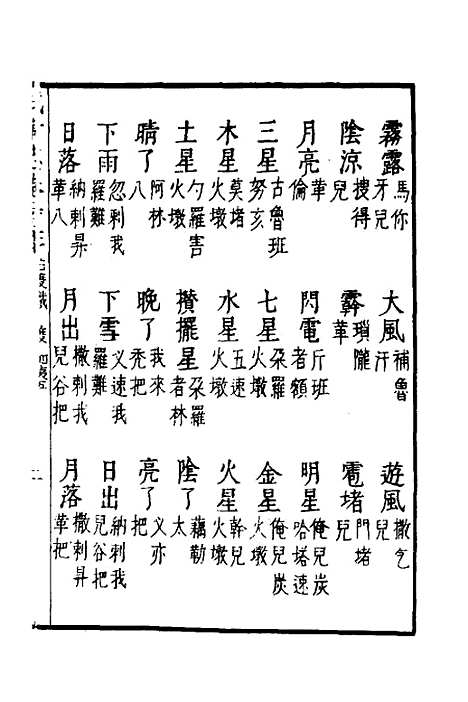 霧露 馬你牙兒
大風 補魯汗
遊風 撒乞兒
陰涼 搜得兒
霧 瑣隴革
雹堵 門堵兒
月亮 華倫
閃電 斤班者額
明星 俺兒炭哈塔速
三星 古魯班努亥
七星 朶羅火墩
金星 俺兒炭火墩
木星 莫堵火墩
水星 五速火墩
火星 幹兒火墩
土星 勺羅害火墩
攢擺星 朶羅者林
陰了 藕勒太
晴了 阿林八
晚了 我來禿把
亮了 义亦把
下雨 忽剌我羅難
下雪 义速我羅難
日出 納剌我兒谷把
日落 納剌昇華八
月出 撒剌我兒谷把
月落 撒剌昇革把